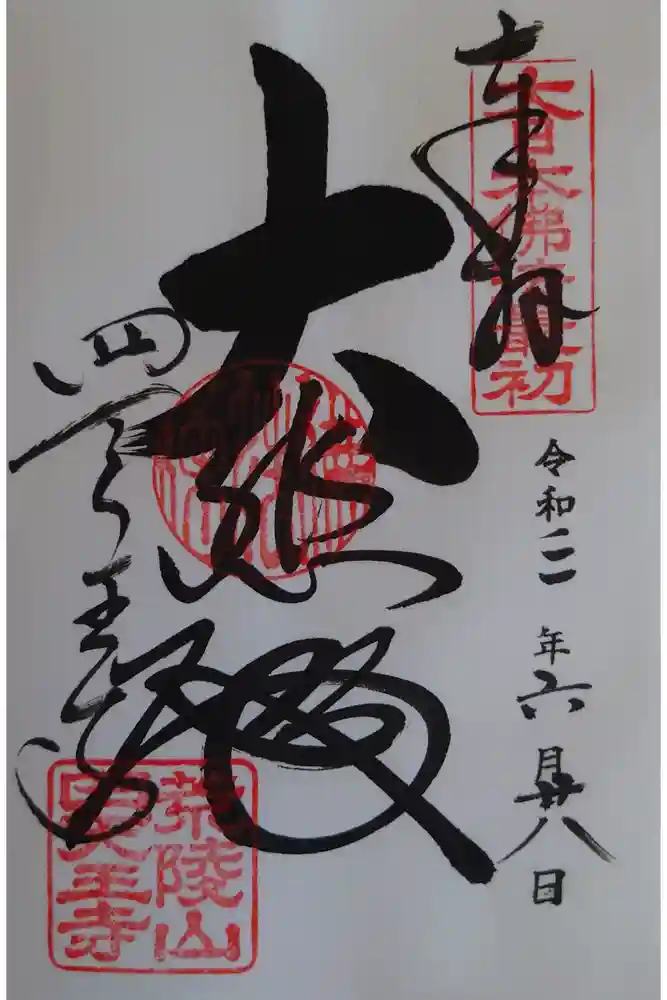 奉拝
大日本佛法最初
令和二年六月廿八日
大悲殿
四天王寺
荒陵山
四天王寺